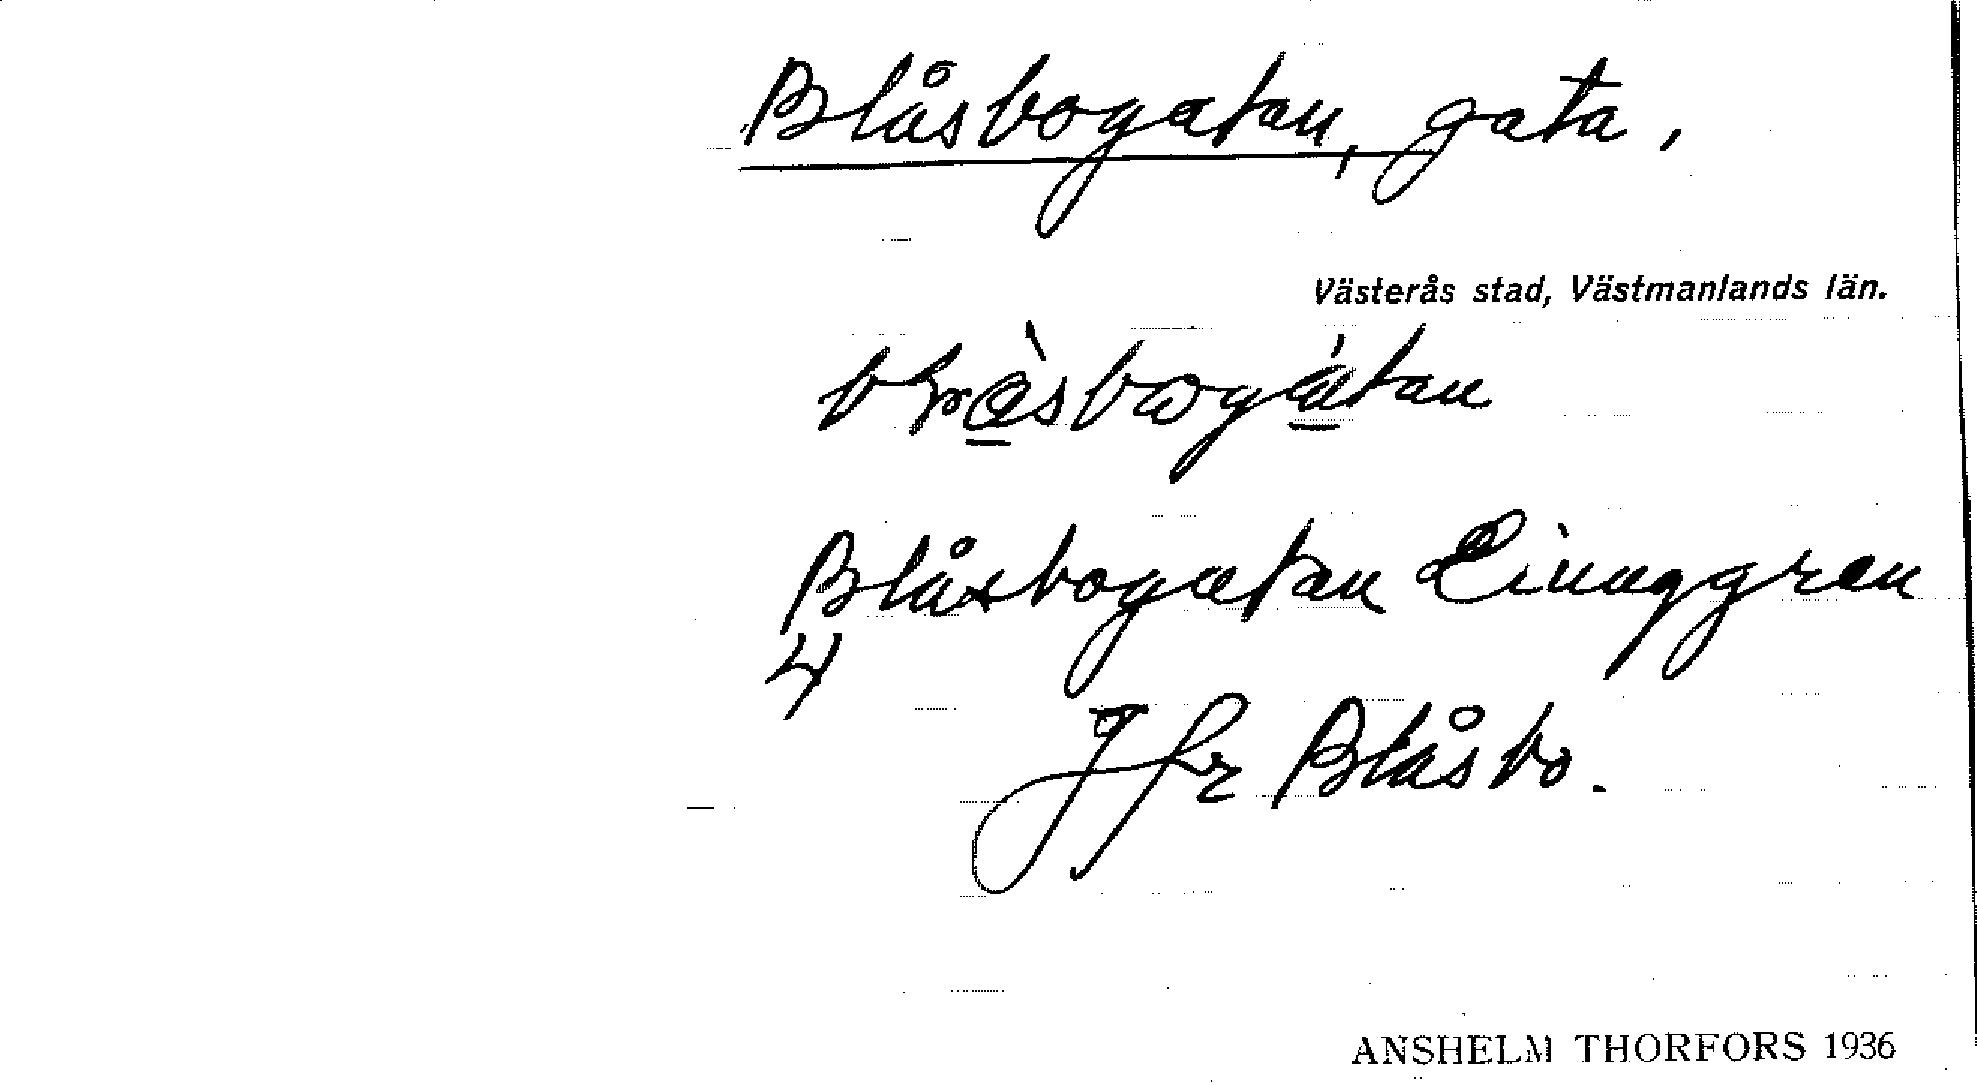 Blåsbogatan, gata,
Västerås stad, Västmanlands län.
Blåsbogatan Ljunggren
4
Jfr Blåsbo.
ANSHELM THORFORS 1936